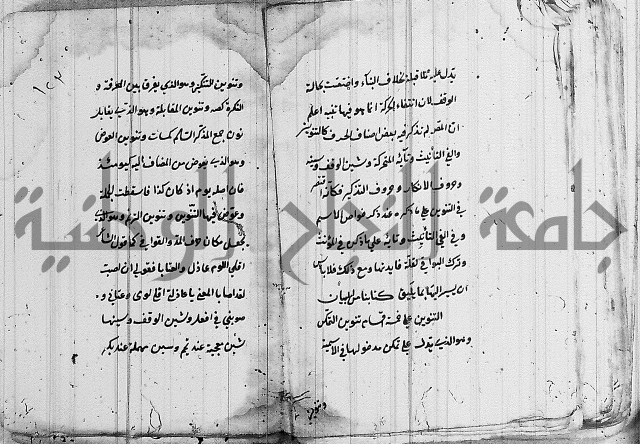 يدل على ما قبله بخلاف البناء واختصت بحالة
الوقف لان انتفاء الحركة انما هو فيها تنبيه اعلم
ان المصر لم يذكر فيه بعض اصناف الحرف كالتنوين
والفي التأنيث وتائه المتحركة وشين الوقف وسينه
وحروف الانكار وحروف التذكير فكأنه اقتصر
في التنوين على ما ذكره عند ذكر خواص الاسم
وفي الفي التأنيث وتائه على ما ذكر في المؤنث
وترك البواقي لقلة فايدتها ومع ذلك فلا بأس
ان يسير اليها بما يليق كتابنا من البيان
التنوين على خمسة اقسام تنوين التمكن
وهو الذي يدل على تمكن مدخولها في الاسمية
وتنوين
وتنوين التنكير وهو الذي يفرق بين المعرفة و
النكرة كصه وتنوين المقابلة وهو الذي يقابل
نون جمع المذكر السالم كمسلمات وتنوين العوض
وهو الذي يعوض من المضاف اليه كيومئذ
فان اصله يوم اذ كان كذا فاسقطت الجملة
وعوض فيها التنوين وتنوين الترنم وهو الذي
يجعل مكان حرف المد والقوافي كما قول الشاعر
اقلي اللوم عاذل والعتابا فقولي ان اصبت
لقد اصابا المعنى يا عاذلة اقلي لوى وعتابي و
صوبني في افعل وشين الوقف وسينها
شين معجمة عند تميم وسين مهملة عند بكر
جامعة النجاح الوطنية